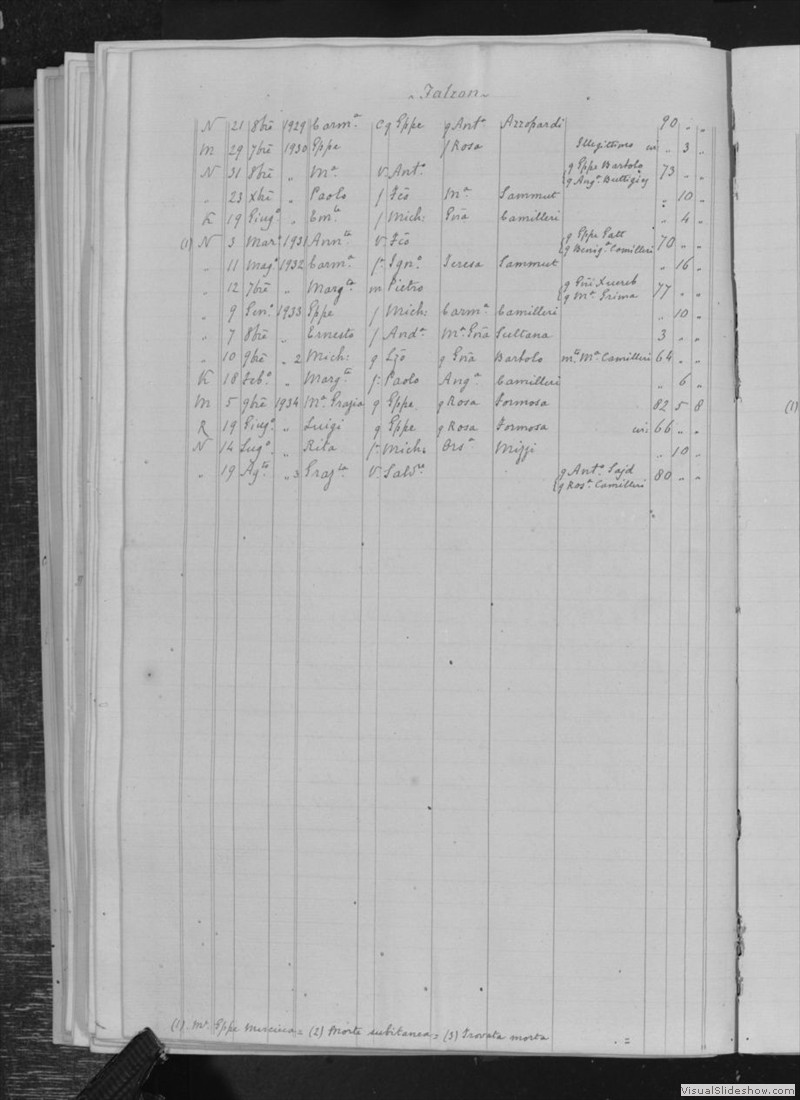 Falzon
N 21 8bre 1929 Carm.a C g Eppe g Ant.a Azzopardi 90 " "
M 29 7bre 1930 Eppe f Rosa Illegittimo " 3 "
N 31 8bre " M.a V. Ant.o { g Eppe Bartolo 73 " "
{ g Ang.a Buttigieg
" 23 Xbre " Paolo f Fco M.a Sammut " 10 "
K 19 Giug.o " Em.le f Mich: Gna Camilleri " 4 "
(1) N 3 Mar.o 1931 Ann.ta V. Fco { g Eppe Gatt 70 " "
{ g Benig.a Camilleri
" 11 Mag.o 1932 Carm.a f. Ign.o Teresa Sammut " 16 "
" 12 7bre " Marg.ta m Pietro { g Gni Xuereb 77 " "
{ g M.a Grima
" 9 Gen.o 1933 Eppe f Mich: Carm.a Camilleri " 10 "
" 7 8bre " Ernesto f And.a M.a Gna Sultana 3 " "
" 10 9bre " 2 Mich: g g Gna Bartolo m.to M.a Camilleri 64 " "
K 18 Feb.o " Marg.ta f. Paolo Ang.a Camilleri " 6 "
M 5 9bre 1934 M.a Grazia g Eppe g Rosa Formosa 82 5 8
R 19 Giug.o " Luigi g Eppe g Rosa Formosa 66 " "
N 14 Lug.o " Rita f. Mich: Ors.a Mizzi " 10 "
" 19 Ag.to " 3 Graz.la V. Salv.re { g Ant.o Sajd 80 " "
{ g Ros.a Camilleri
(1)
(1) M.e Eppe = (2) Morte subitanea = (3) Trovata morta =
VisualSlideshow.com